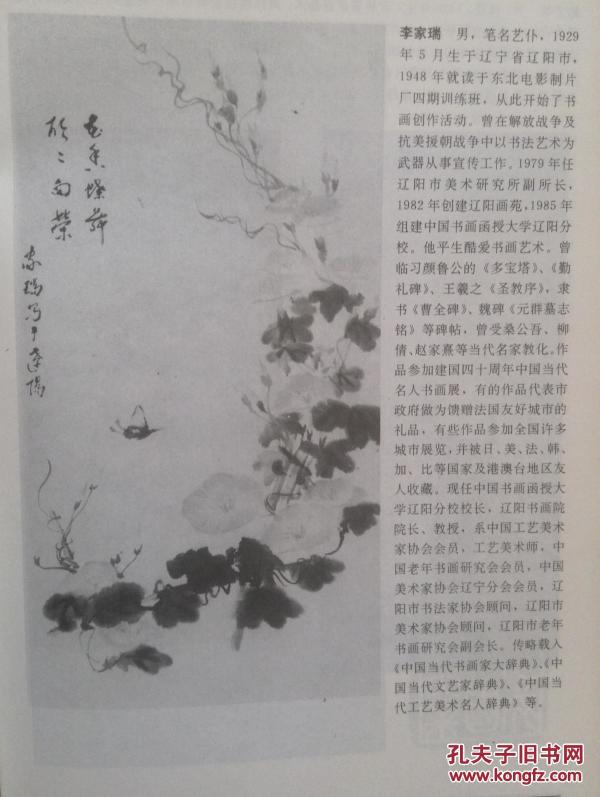 李家瑞　男，笔名艺仆，1929
年5月生于辽宁省辽阳市，
1948年就读于东北电影制片
厂四期训练班，从此开始了书
画创作活动。曾在解放战争及
抗美援朝战争中以书法艺术为
武器从事宣传工作。1979年任
辽阳市美术研究所副所长，
1982年创建辽阳画苑，1985年
组建中国书画函授大学辽阳分
校。他平生酷爱书画艺术。曾
临习颜鲁公的《多宝塔》、《勤
礼碑》、王羲之《圣教序》，隶
书《曹全碑》、魏碑《元群墓志
铭》等碑帖，曾受桑公吾、柳
倩、赵家熹等当代名家教化。作
品参加建国四十周年中国当代
名人书画展，有的作品代表市
政府做为馈赠法国友好城市的
礼品，有些作品参加全国许多
城市展览，并被日、美、法、韩、
加、比等国家及港澳台地区友
人收藏。现任中国书画函授大
学辽阳分校校长，辽阳书画院
院长、教授，系中国工艺美术
家协会会员，工艺美术师，中
国老年书画研究会会员，中国
美术家协会辽宁分会会员，辽
阳市书法家协会顾问，辽阳市
美术家协会顾问，辽阳市老年
书画研究会副会长。传略载入
《中国当代书画家大辞典》、《中
国当代文艺家辞典》、《中国当
代工艺美术名人辞典》等。
花香蝶舞
欣欣向荣
家瑞写于辽阳
孔夫子旧书网
www.kongfz.com